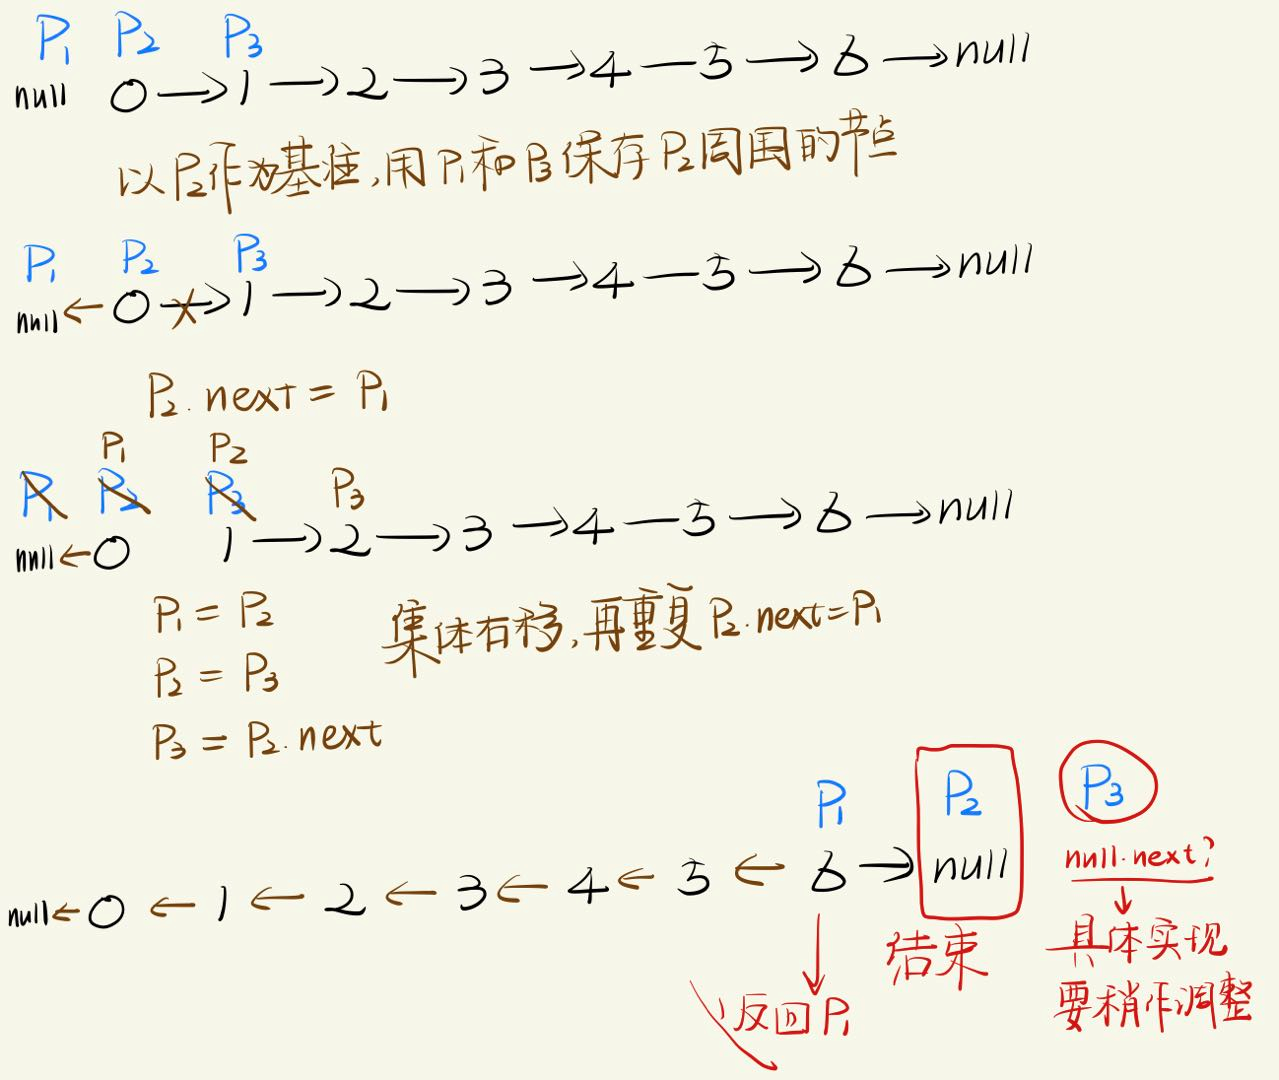 P1 P2 P3
null 0 → 1 → 2 → 3 → 4 — 5 → 6 → null
以P2作为基准,用P1和P3保存P2周围的节点
P1 P2 P3
null ← 0 → 1 → 2 → 3 → 4 — 5 → 6 → null
P2.next = P1
P1 P2
P1 P2 P3 P3
null ← 0 1 → 2 → 3 → 4 — 5 → 6 → null
P1 = P2
集体右移,再重复P2.next=P1
P2 = P3
P3 = P2.next
P1 P2 P3
null ← 0 ← 1 ← 2 ← 3 ← 4 ← 5 ← 6 → null
null.next?
结束
具体实现
要稍作调整
返回P1